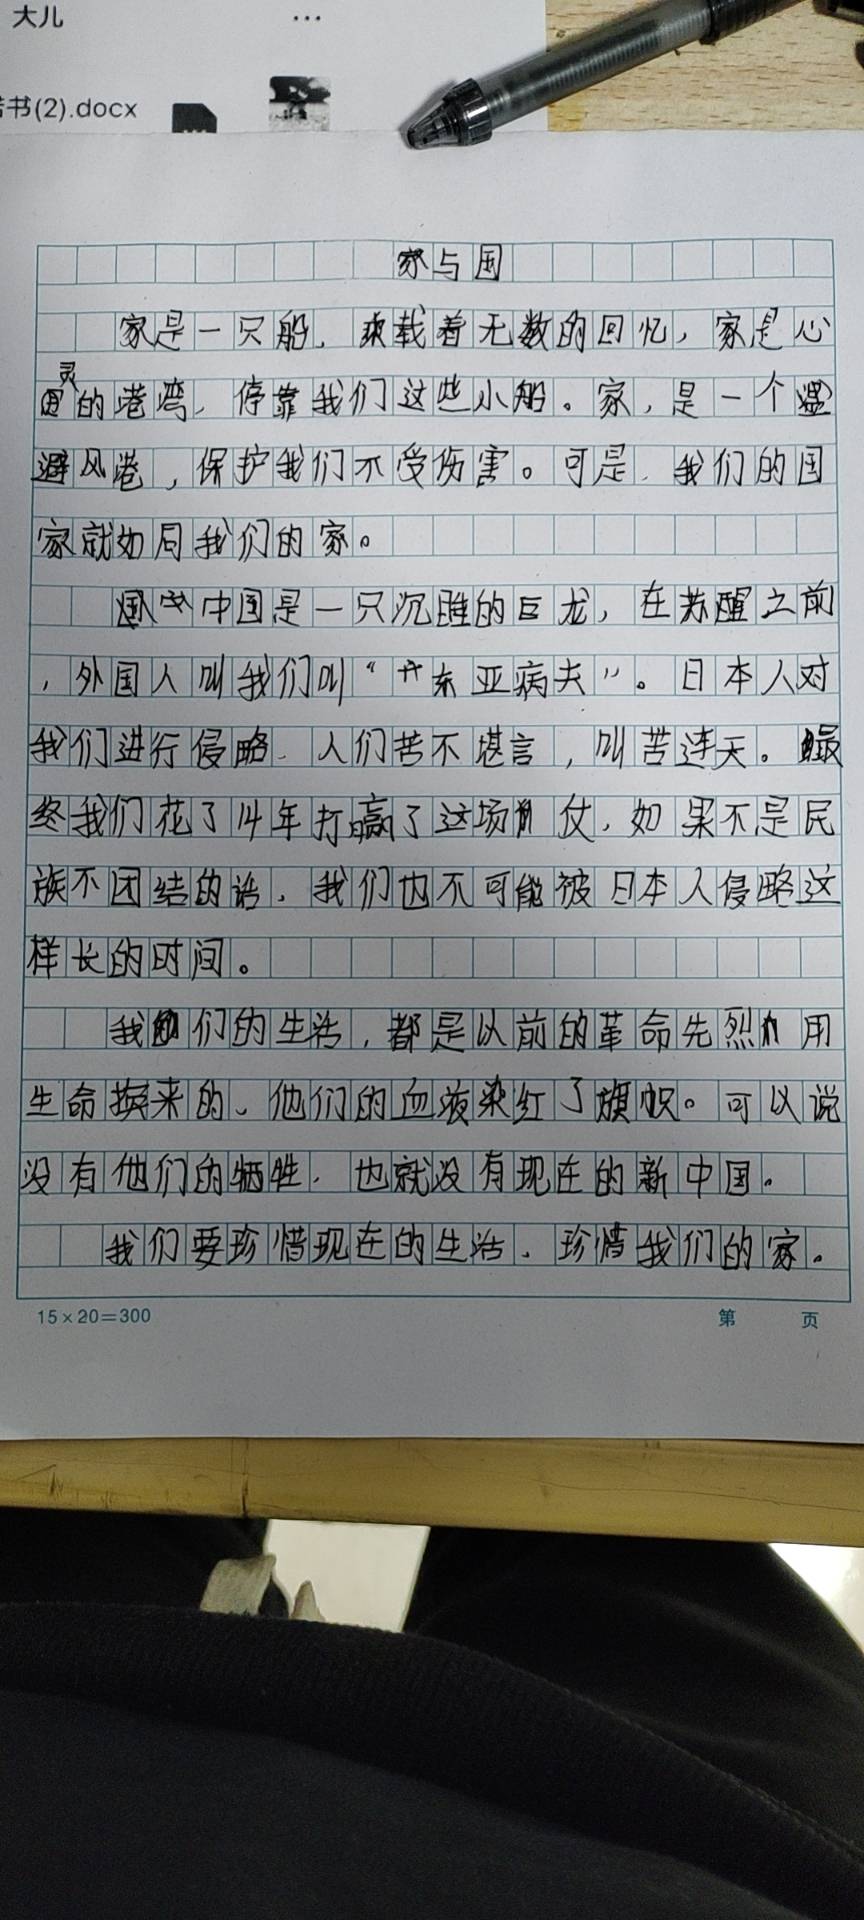 大儿
...
书(2).docx
家与国
家是一只船，乘载着无数的回忆，家是心
灵的港湾，停靠我们这些小船。家，是一个
避风港，保护我们不受伤害。可是，我们的国
家就如同我们的家。
中国是一只沉睡的巨龙，在苏醒之前
，外国人叫我们叫“东亚病夫”。日本人对
我们进行侵略，人们苦不堪言，叫苦连天。最
终我们花了14年打赢了这场仗，如果不是民
族不团结的话，我们也不可能被日本人侵略这
样长的时间。
我们的生活，都是以前的革命先烈用
生命换来的、他们的血液染红了旗帜。可以说
没有他们的牺牲，也就没有现在的新中国。
我们要珍惜现在的生活、珍惜我们的家。
15×20=300
第 页